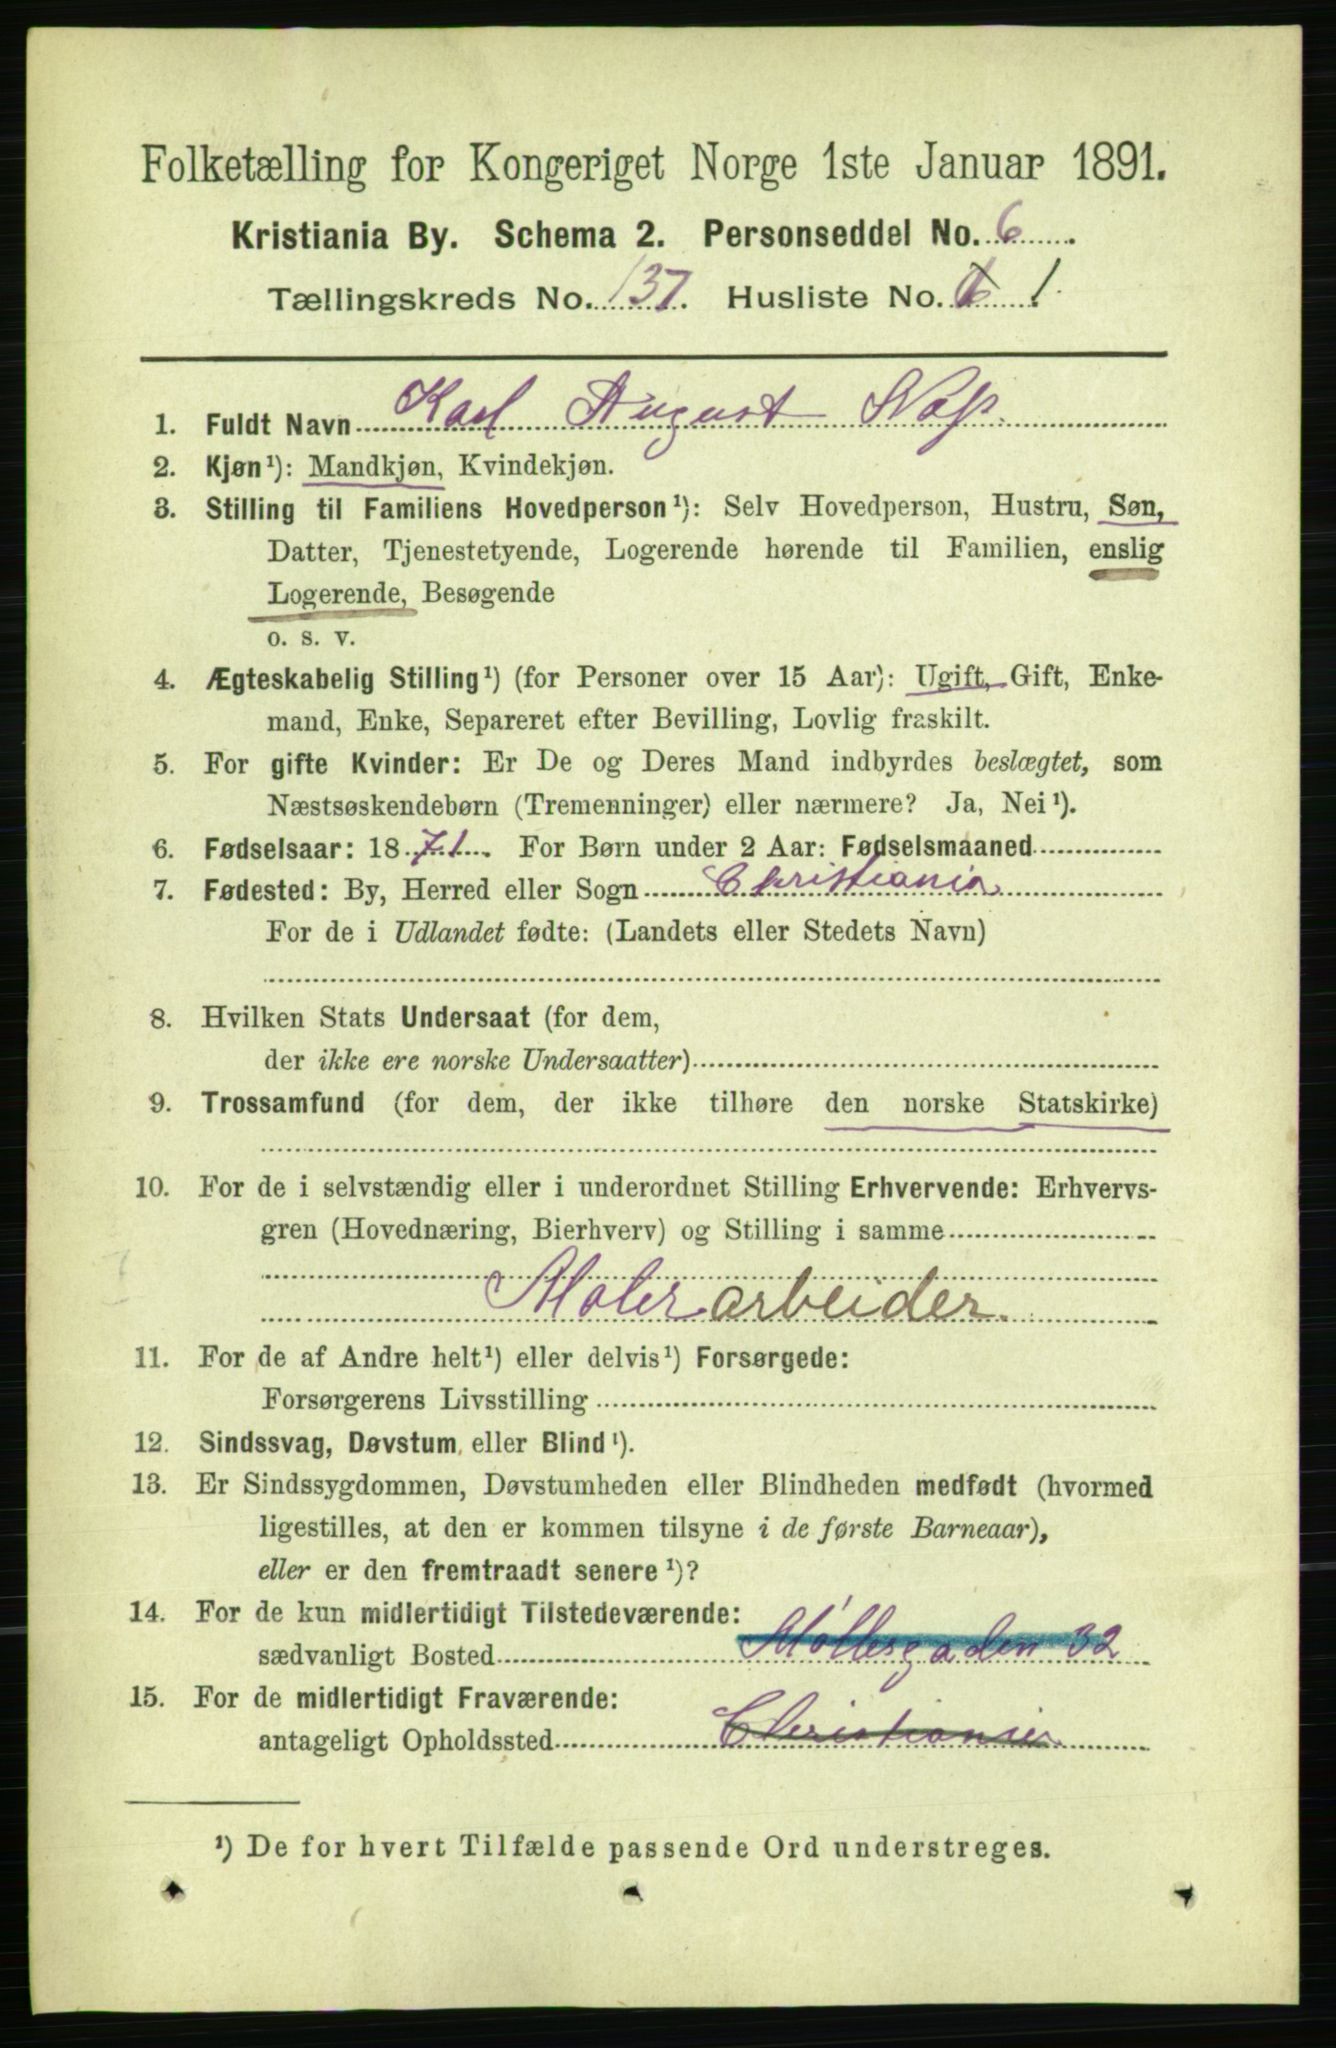 Folketælling for Kongeriget Norge 1ste Januar 1891.
Kristiania By. Schema 2. Personseddel No. 6
Tællingskreds No. 137. Husliste No. 1
1. Fuldt Navn Karl August Næss
2. Kjøn¹): Mandkjøn, Kvindekjøn.
3. Stilling til Familiens Hovedperson¹): Selv Hovedperson, Hustru, Søn,
Datter, Tjenestetyende, Logerende hørende til Familien, enslig
Logerende, Besøgende
o. s. v.
4. Ægteskabelig Stilling¹) (for Personer over 15 Aar): Ugift, Gift, Enke-
mand, Enke, Separeret efter Bevilling, Lovlig fraskilt.
5. For gifte Kvinder: Er De og Deres Mand indbyrdes beslægtet, som
Næstsøskendebørn (Tremenninger) eller nærmere? Ja, Nei¹).
6. Fødselsaar: 1871. For Børn under 2 Aar: Fødselsmaaned
7. Fødested: By, Herred eller Sogn Christiania
For de i Udlandet fødte: (Landets eller Stedets Navn)
8. Hvilken Stats Undersaat (for dem,
der ikke ere norske Undersaatter)
9. Trossamfund (for dem, der ikke tilhøre den norske Statskirke)
10. For de i selvstændig eller i underordnet Stilling Erhvervende: Erhvervs-
gren (Hovednæring, Bierhverv) og Stilling i samme
Malerarbeider.
11. For de af Andre helt¹) eller delvis¹) Forsørgede:
Forsørgerens Livsstilling
12. Sindssvag, Døvstum eller Blind¹).
13. Er Sindssygdommen, Døvstumheden eller Blindheden medfødt (hvormed
ligestilles, at den er kommen tilsyne i de første Barneaar),
eller er den fremtraadt senere¹)?
14. For de kun midlertidigt Tilstedeværende:
sædvanligt Bosted Møllergaden 32
15. For de midlertidigt Fraværende:
antageligt Opholdssted Christiania
¹) De for hvert Tilfælde passende Ord understreges.